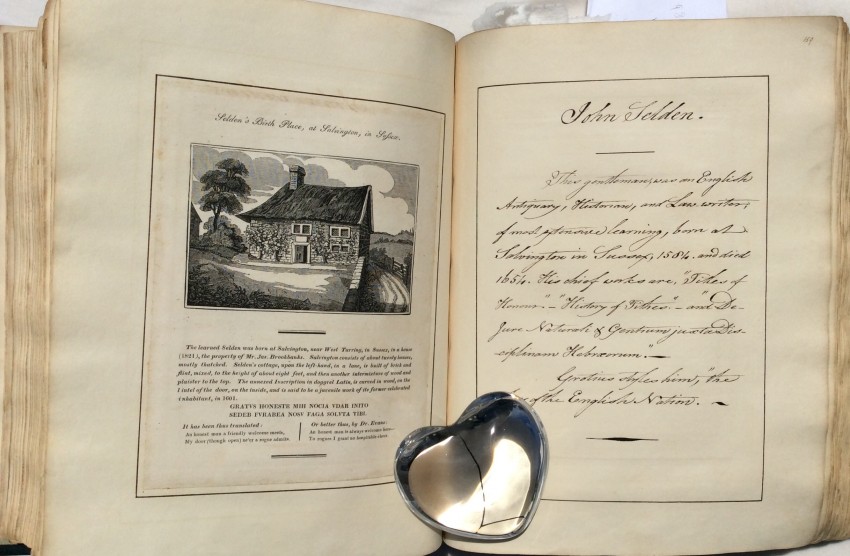 Selden's Birth Place, at Salvington, in Sussex.
The learned Selden was born at Salvington, near West Tarring, in Sussex, in a house
(1821), the property of Mr. Jas. Brookbanks. Salvington consists of about twenty houses,
mostly thatched. Selden's cottage, upon the left-hand, in a lane, is built of brick and
flint, mixed, to the height of about eight feet, and then another intermixture of wood and
plaister to the top. The annexed Inscription in doggrel Latin, is carved in wood, on the
lintel of the door, on the inside, and is said to be a juvenile work of its former celebrated
inhabitant, in 1601.
GRATVS HONESTE MIH NOCIA VDAR INITO
SEDEB FVRABEA NOSV FAGA SOLVTA TIBI.
It has been thus translated:
An honest man a friendly welcome meets,
My door (though open) ne'er a rogue admits.
Or better thus, by Dr. Evans:
An honest man is always welcome here,
To rogues I grant no hospitable cheer.
117
John Selden.
This gentleman, was an English
Antiquary, Historian, and Law writer,
of most extensive learning, born at
Salvington in Sussex, 1584. and died
1654. His chief works are, "Titles of
Honour." - "History of Tithes." - and "De
Jure Naturali & Gentium juxta Dis-
ciplinam Hebræorum." -
Grotius styles him, "the
of the English Nation.